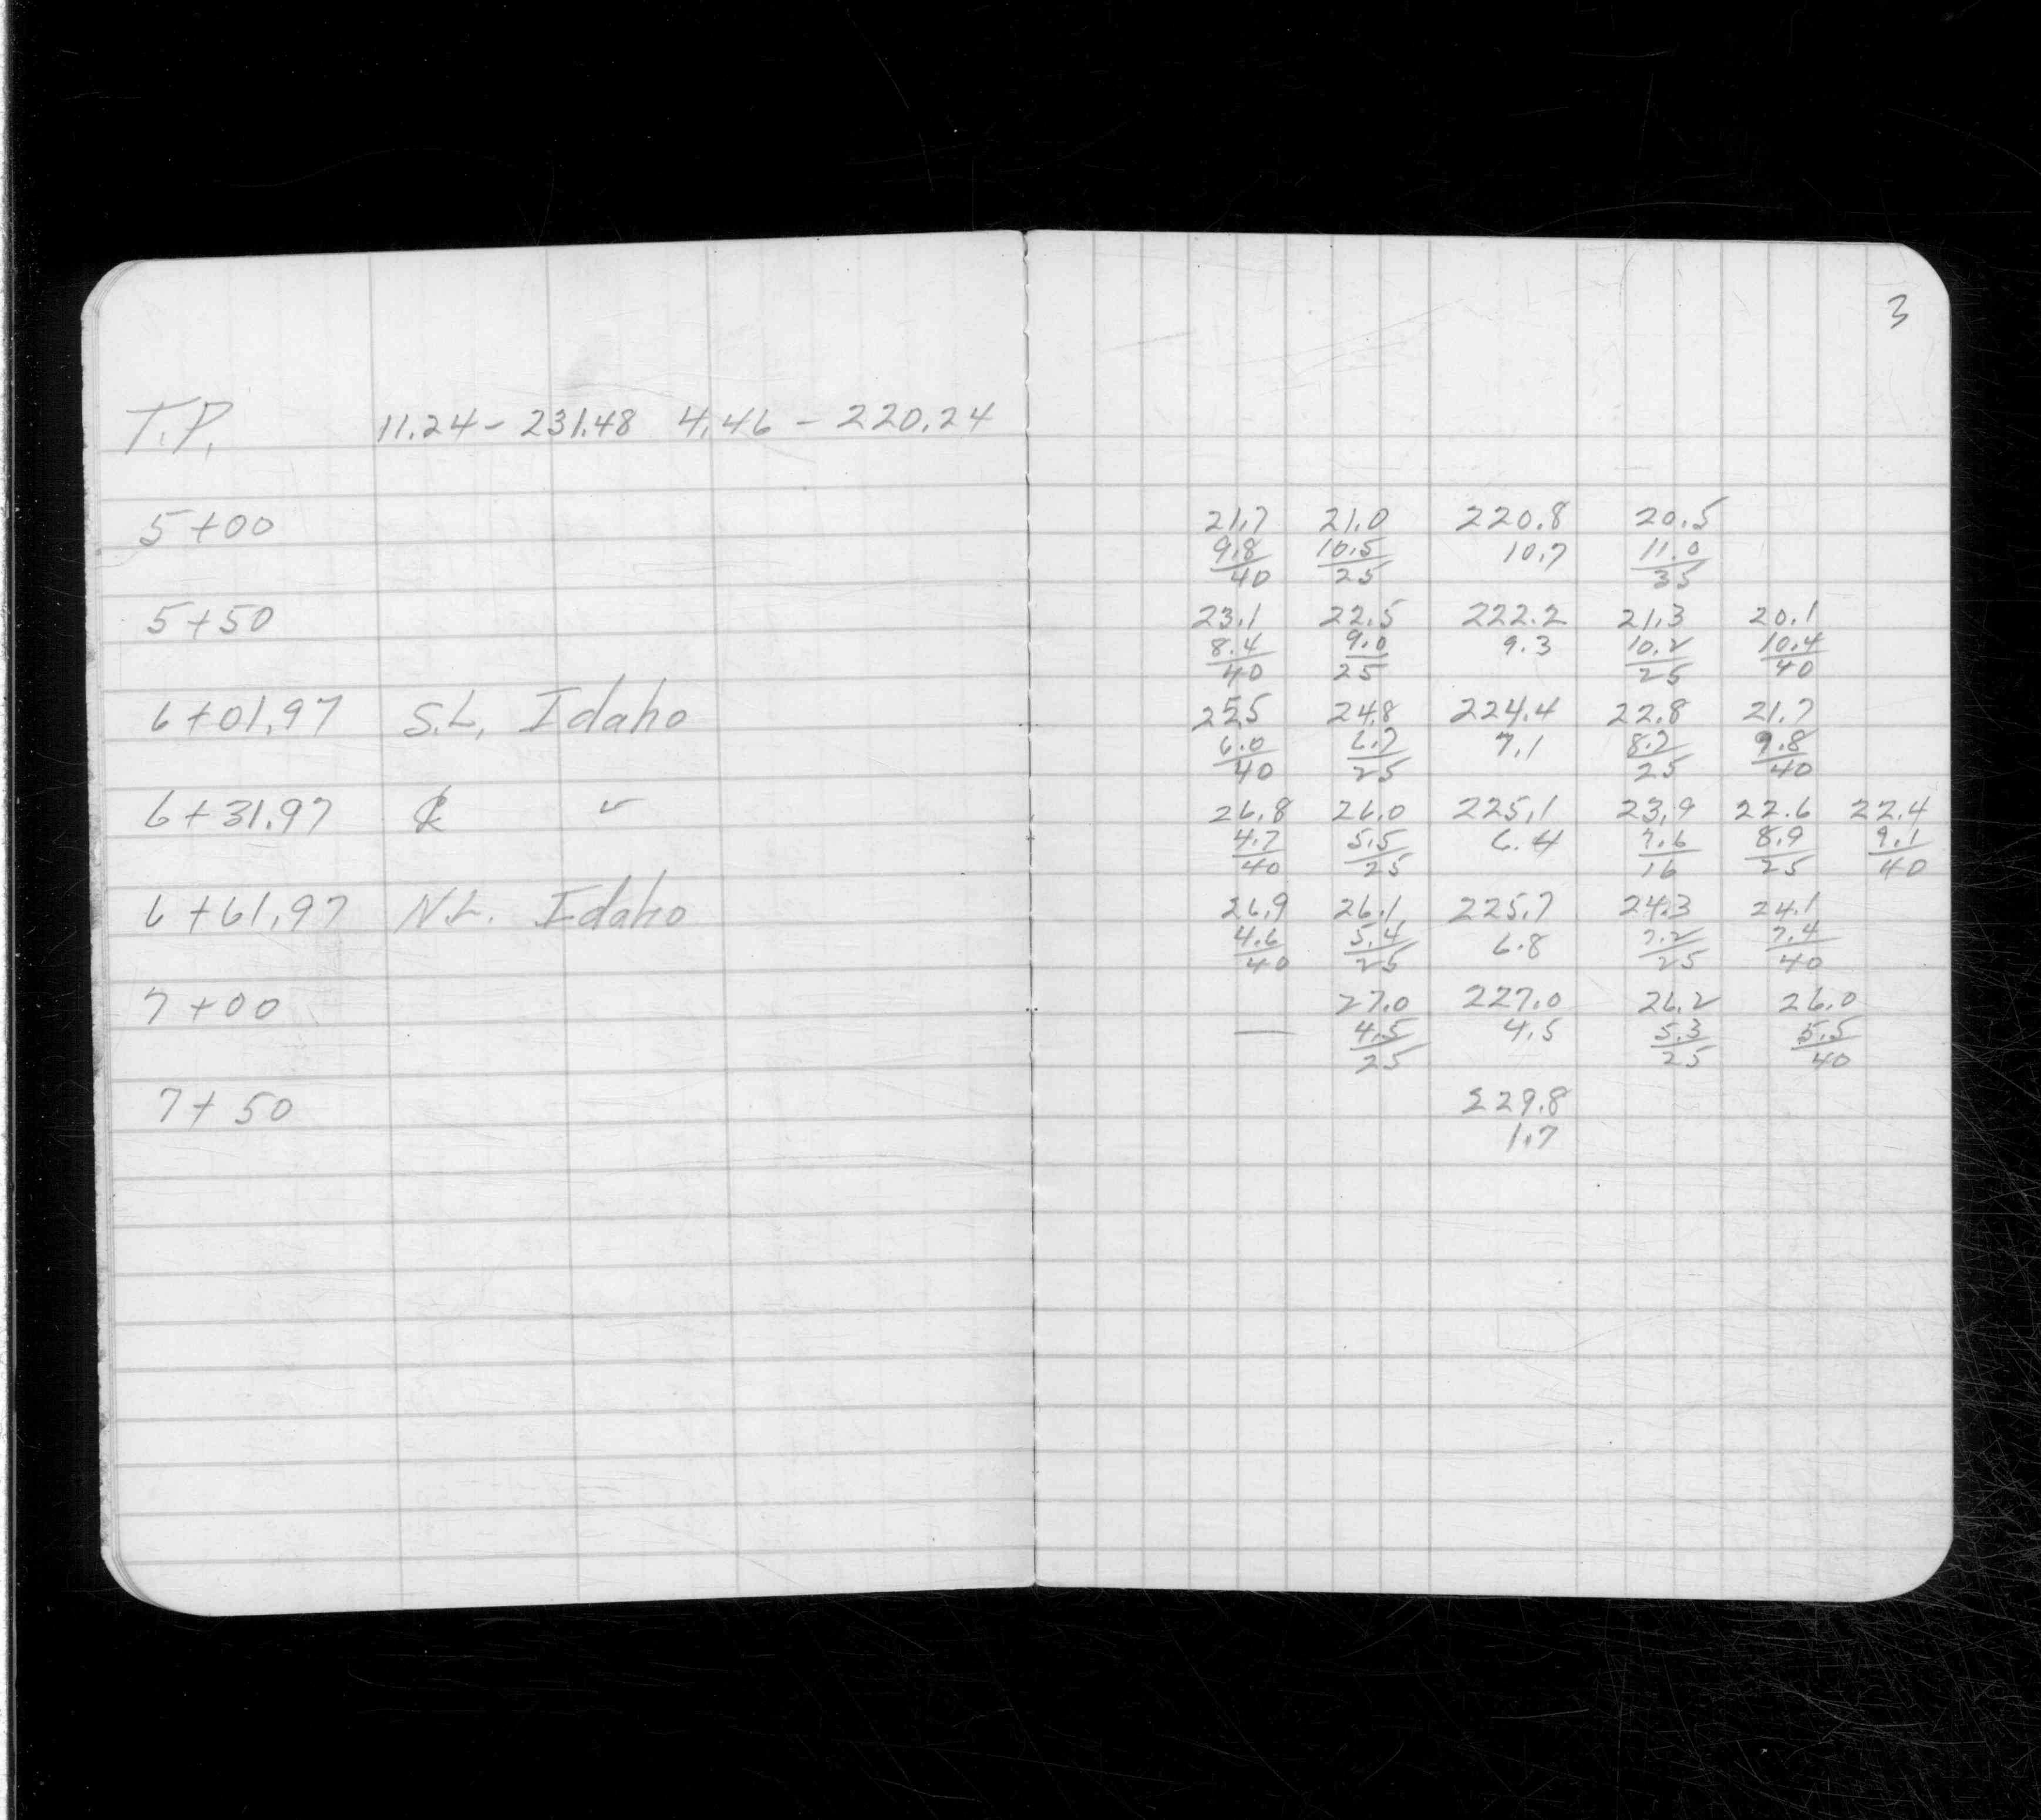 3
T.P. 11.24 - 231.48 4.46 - 220.24
5+00 21.7 21.0 220.8 20.5
9.8 10.5 10.7 11.0
40 25 35
5+50 23.1 22.5 222.2 21.3 20.1
8.4 9.0 9.3 10.2 10.4
40 25 25 40
6+01.97 S.L. Idaho 225.5 24.8 224.4 22.8 21.7
6.0 6.7 7.1 8.7 9.8
40 25 25 40
6+31.97 ℄ ✓ 26.8 26.0 225.1 23.9 22.6 22.4
4.7 5.5 6.4 7.6 8.9 9.1
40 25 16 25 40
6+61.97 N.L. Idaho 26.9 26.1 225.7 24.3 24.1
4.6 5.4 6.8 7.2 7.4
40 25 25 40
7+00 27.0 227.0 26.2 26.0
— 4.5 4.5 5.3 5.5
25 25 40
7+50 229.8
1.7